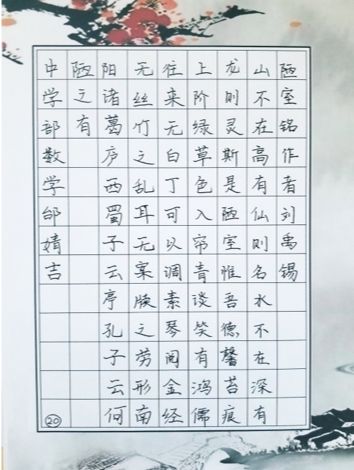 陋室铭作者刘禹锡
山不在高有仙则名水不在深有
龙则灵斯是陋室惟吾德馨苔痕
上阶绿草色入帘青谈笑有鸿儒
往来无白丁可以调素琴阅金经
无丝竹之乱耳无案牍之劳形南
阳诸葛庐西蜀子云亭孔子云何
陋之有
中学部数学邰婧吉
⑳